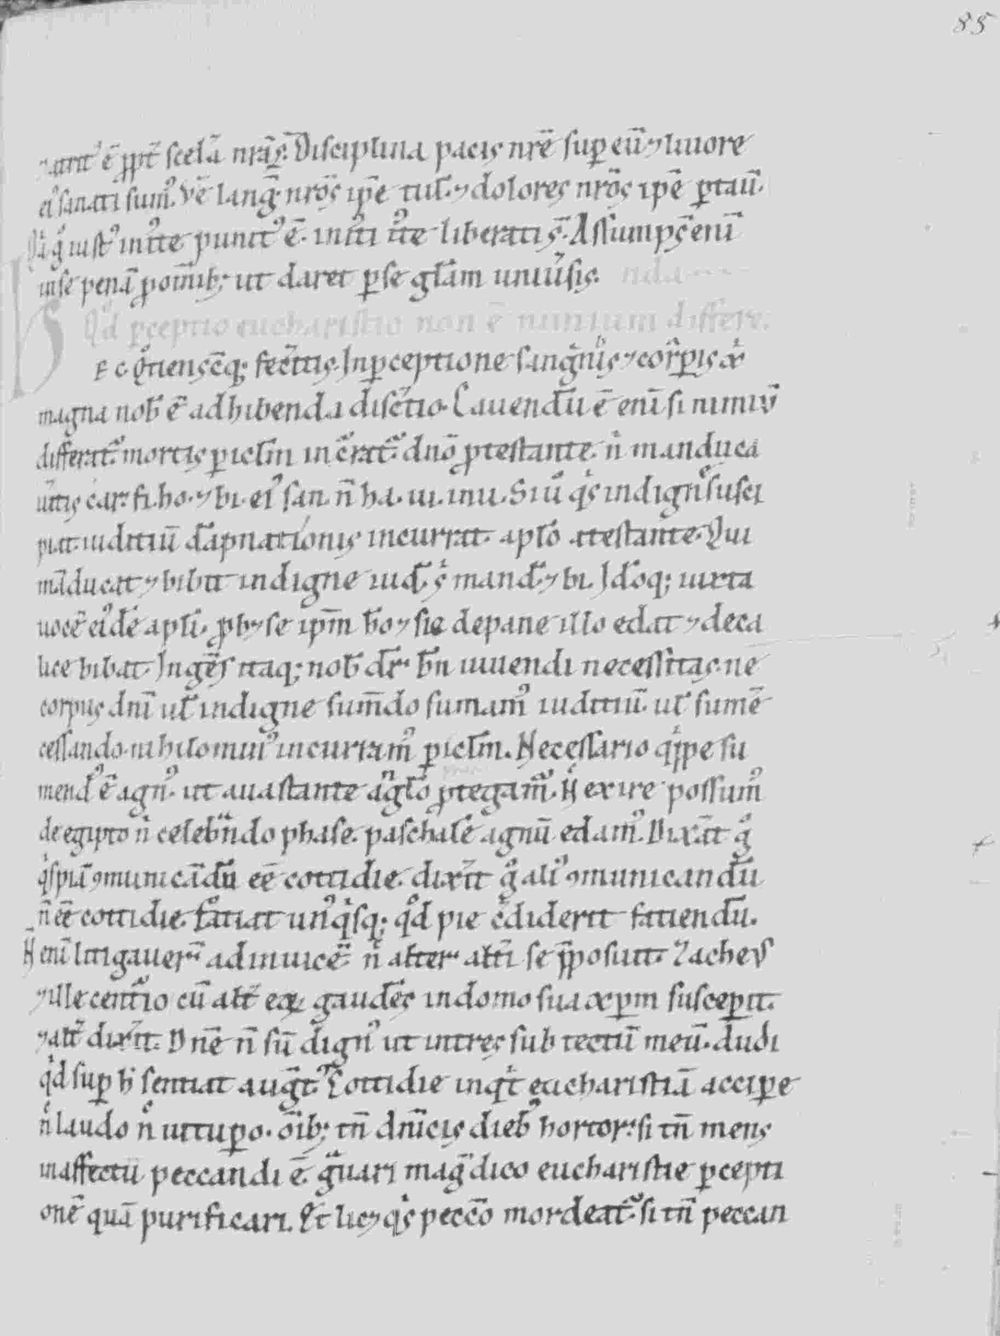 85
ē ꝓpt̄ scela nr̄a. Disciplina pacis nr̄e suꝑ eū ⁊ liuore
eiꝰ sanati sumꝰ. Ve languo nr̄os ip̄e tul̄. ⁊ dolores nr̄os ip̄e portau.
iustꝰ iniuste punitꝰ ē. iniusti iuste liberati s̄. Assumps̄ eni
in se penā ꝓ omib; ut daret ꝑ se glām uniu̓sis. nda
Qd ꝑceptio eucharistie non ē nimium differe.
Ec qͦtienscūq; fecitis. In ꝑceptione sanguinis ⁊ corꝑis xp̄i
magna nob̄ ē adhibenda discᵉtio. Cauendū ē eni si nimiū
differatᷣ mortis ꝑiclm̄ incᵉratᷣ dn̄o ꝓtestante. nͥ manduca
uitis car. fi. ho. ⁊ bi. eiꝰ san. n̄ ha. ui. in u. Si ū qͥs indignꝰ susci
piat. iuditiū dāpnationis incurrat. aplō atestante. Qui
māducat ⁊ bibit indigne iud̄. sͥ mand̄. ⁊ bi. Idcoq; iuxta
uocē eiꝰdē apli. ꝓb; se ipm̄ ho ⁊ sic de pane illo edat ⁊ de ca
lice bibat. Ingēs itaq; nob̄ dr̄ bn̄ uiuendi necessitas. ne
corpus dn̄i ul̄ indigne sumēdo sumamꝰ iuditiū. ul̄ sumē
cessando. nihilominꝰ incurramꝰ ꝑiclm̄. Necessario qͥppe su
mendꝰ ē agnꝰ. ut a uastante agl̄o ꝓtegamᷣ. Nͨ exire possumꝰ
de egipto nͥ celebᷓndo phase. paschalē agnū edamꝰ. Dixāt gͦ
qͥspiā ꝯmunicādū eē cottidie. dixīt gͦ aliꝰ ꝯmunicandū
n̄ eē cottidie. fatiat unꝰqͥsq; qͦd pie cᵉdiderit fatiendū.
N̄ eni litigauer̄ adinuicē. nͨ alter alt̄i se p̄posuit. Zacheꝰ
⁊ ille centͥio cū alt̄ eoꝝ gaudēs in domo sua xpm̄ suscepit.
⁊ alt̄ dix̄it. Dnē n̄ sū dignꝰ ut intres sub tectū meū. audi
qͥd suꝑ h̄ sentiat augᵗ. Cottidie inqͥt eucharistiā accipere
nͨ laudo nͨ uitupo. oīb; tn̄ dn̄icis dieb; hortor. si tn̄ mens
in affectu peccandi ē. gᷓuari magͥ dico eucharistie ꝑcepti
onē quā purificari. Et lic; qͥs peccō mordeatᷣ. si tn̄ peccan